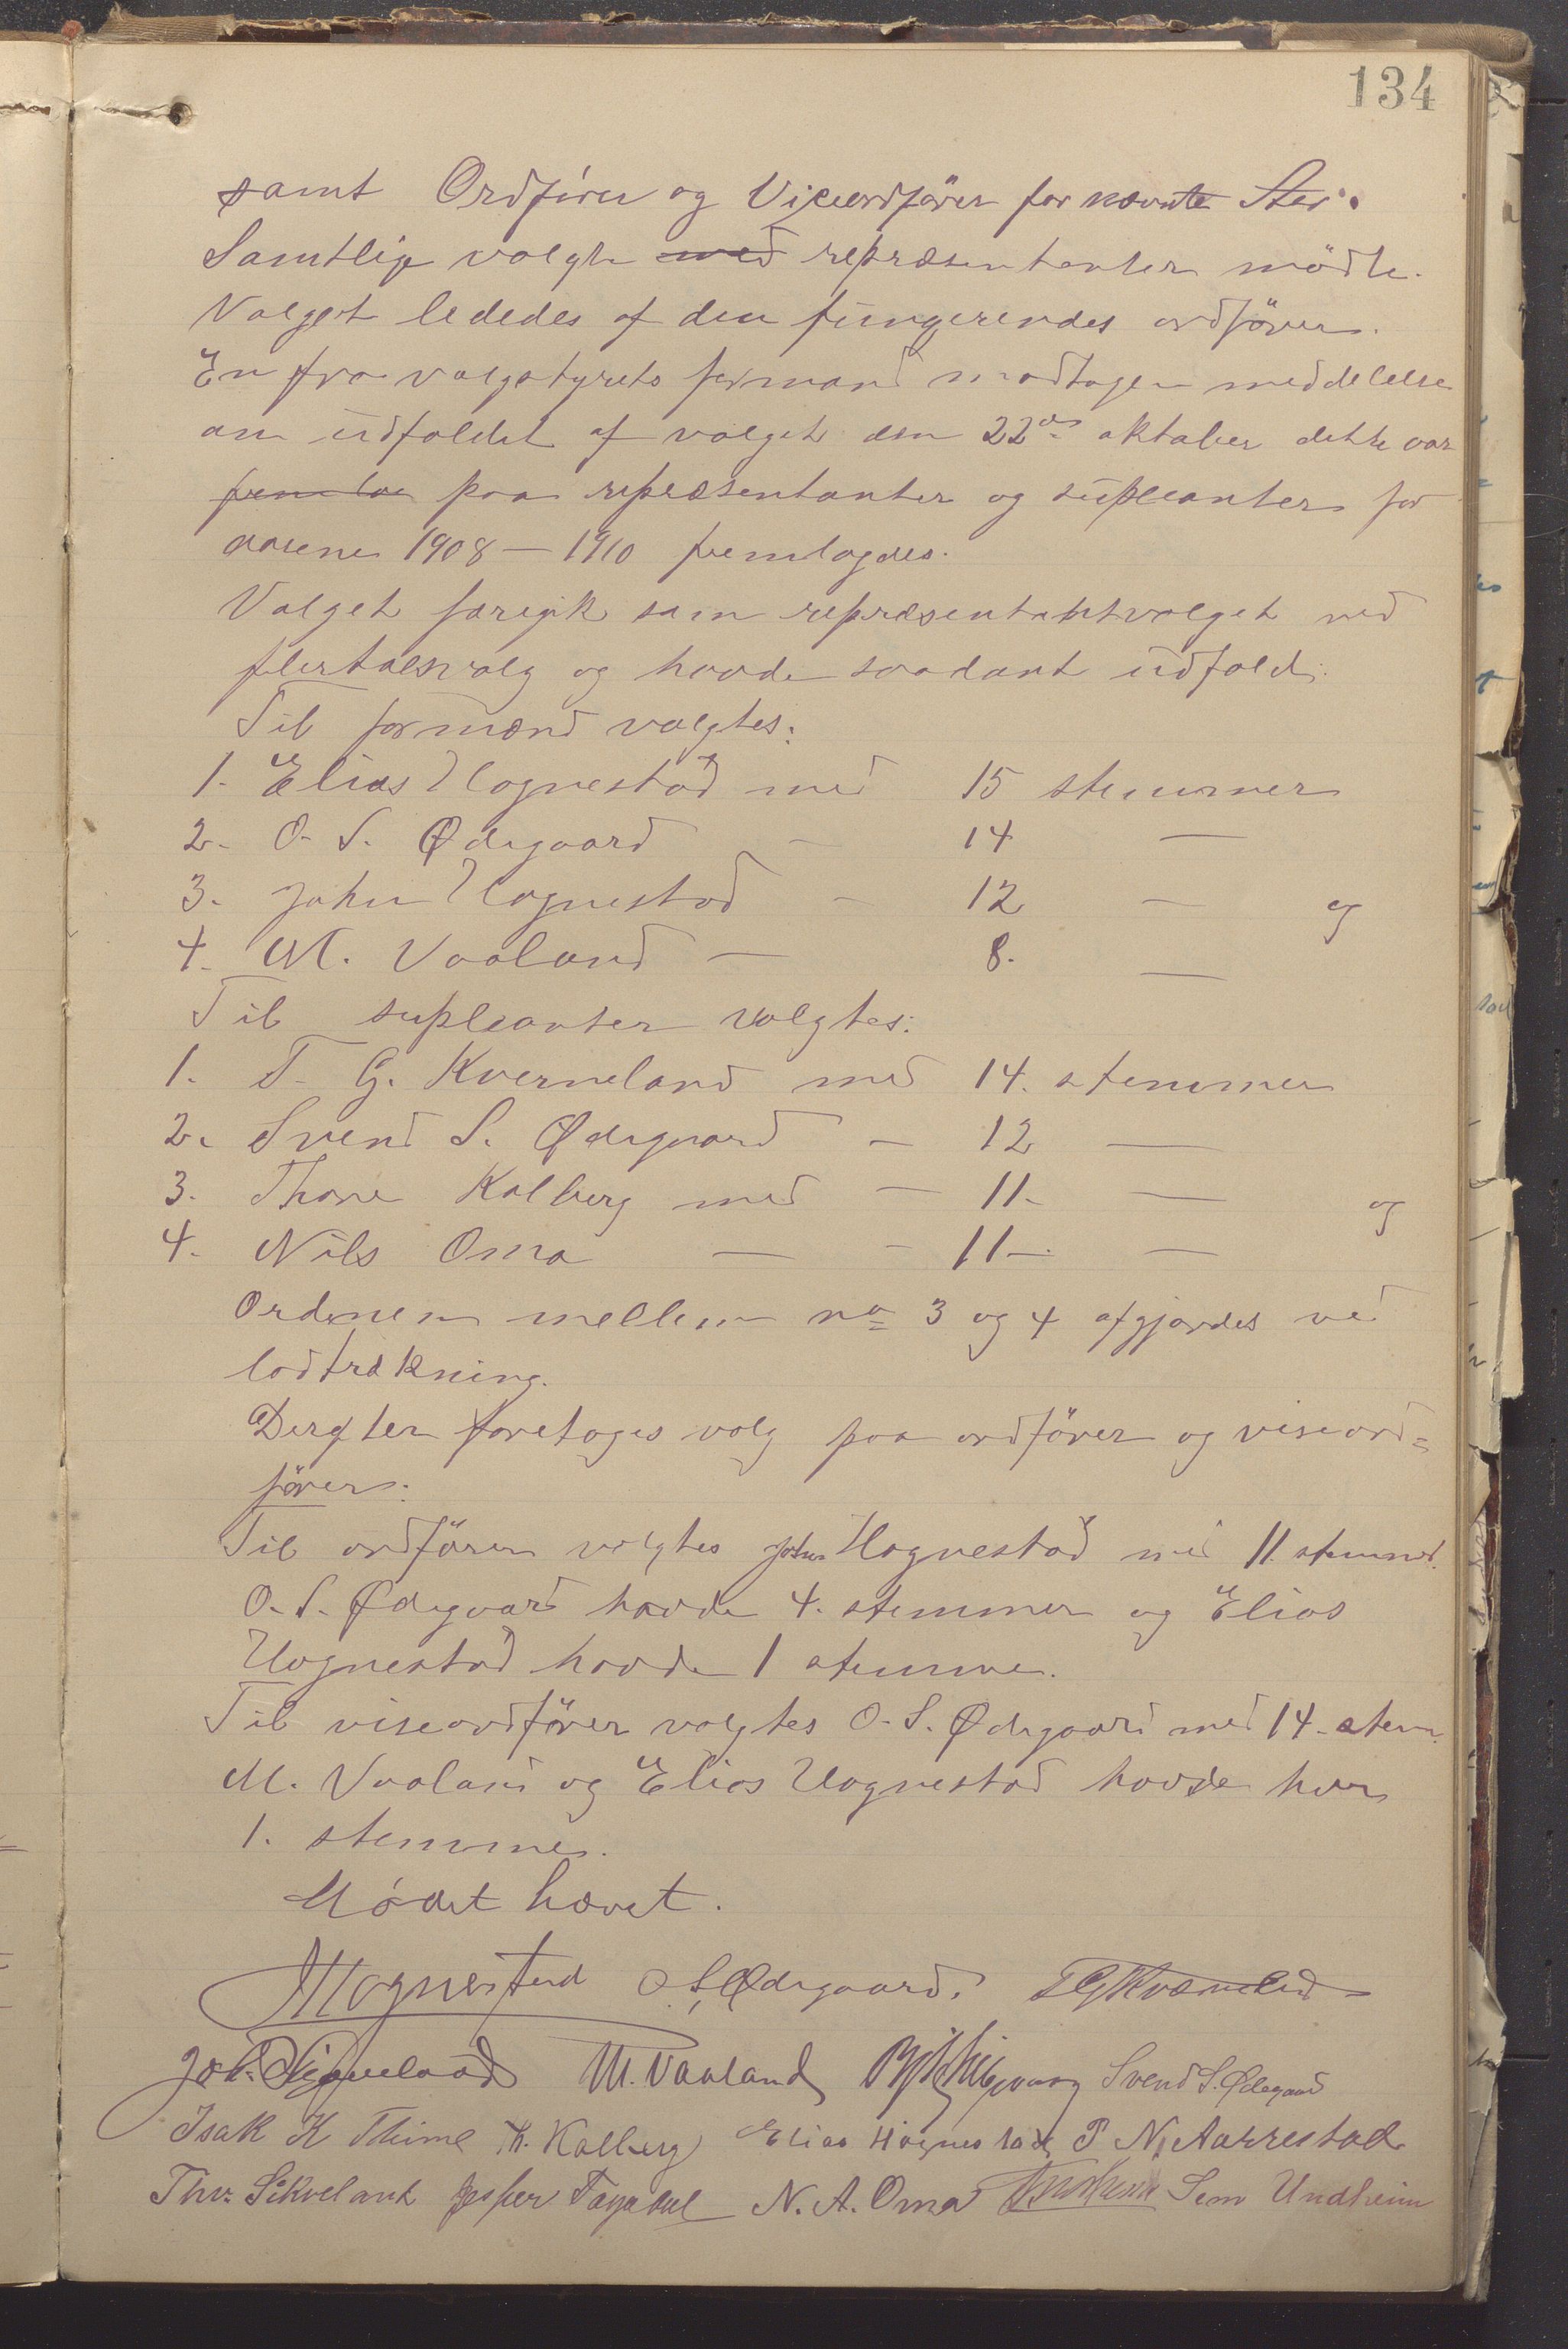 134
samt Ordfører og Viceordfører for nævnte
Samtlige valgte med repræsentanter mödte.
Valget lededes af den fungerendes ordförer.
En fra valgstyrets formand modtagen meddelelse
om udfaldet af valget den 22de oktober dette aar
paa repræsentanter og supleanter for
aarene 1908 — 1910 fremlagdes.
Valget foregik som repræsentantvalget ved
flertalsvalg og havde saadant udfald:
Til formænd valgtes:
1. Elias Hognestad med 15 stemmer
2. O. S. Ødegaard — 14 —
3. John Hognestad — 12 — og
4. M. Vaaland — 8. —
Til supleanter valgtes:
1. T. G. Kverneland med 14. stemmer
2. Svend S. Ødegaard — 12 —
3. Thore Kalberg med — 11 — og
4. Nils Oma — - 11 — —
Ordenen mellem no 3 og 4 afgjordes ved
lodtrækning.
Derefter foretoges valg paa ordförer og viseord=
förer:
Til ordförer valgtes John Hognestad med 11 stemmer.
O. S. Ødegaard havde 4. stemmer og Elias
Hognestad havde 1 stemme.
Til viseordförer valgtes O. S. Ødegaard med 14. stem.
M. Vaaland og Elias Hognestad havde hver
1. stemme.
Mödet hævet.
JHognestad O S Ødegaard. TGKværneland
Joh. M. Vaaland Svend S. Ødegaard
Isak K Thime Th. Kalberg Elias Hognestad P N Aarrestad
Thv. Sikveland Jesper N. A. Oma Sem Undheim